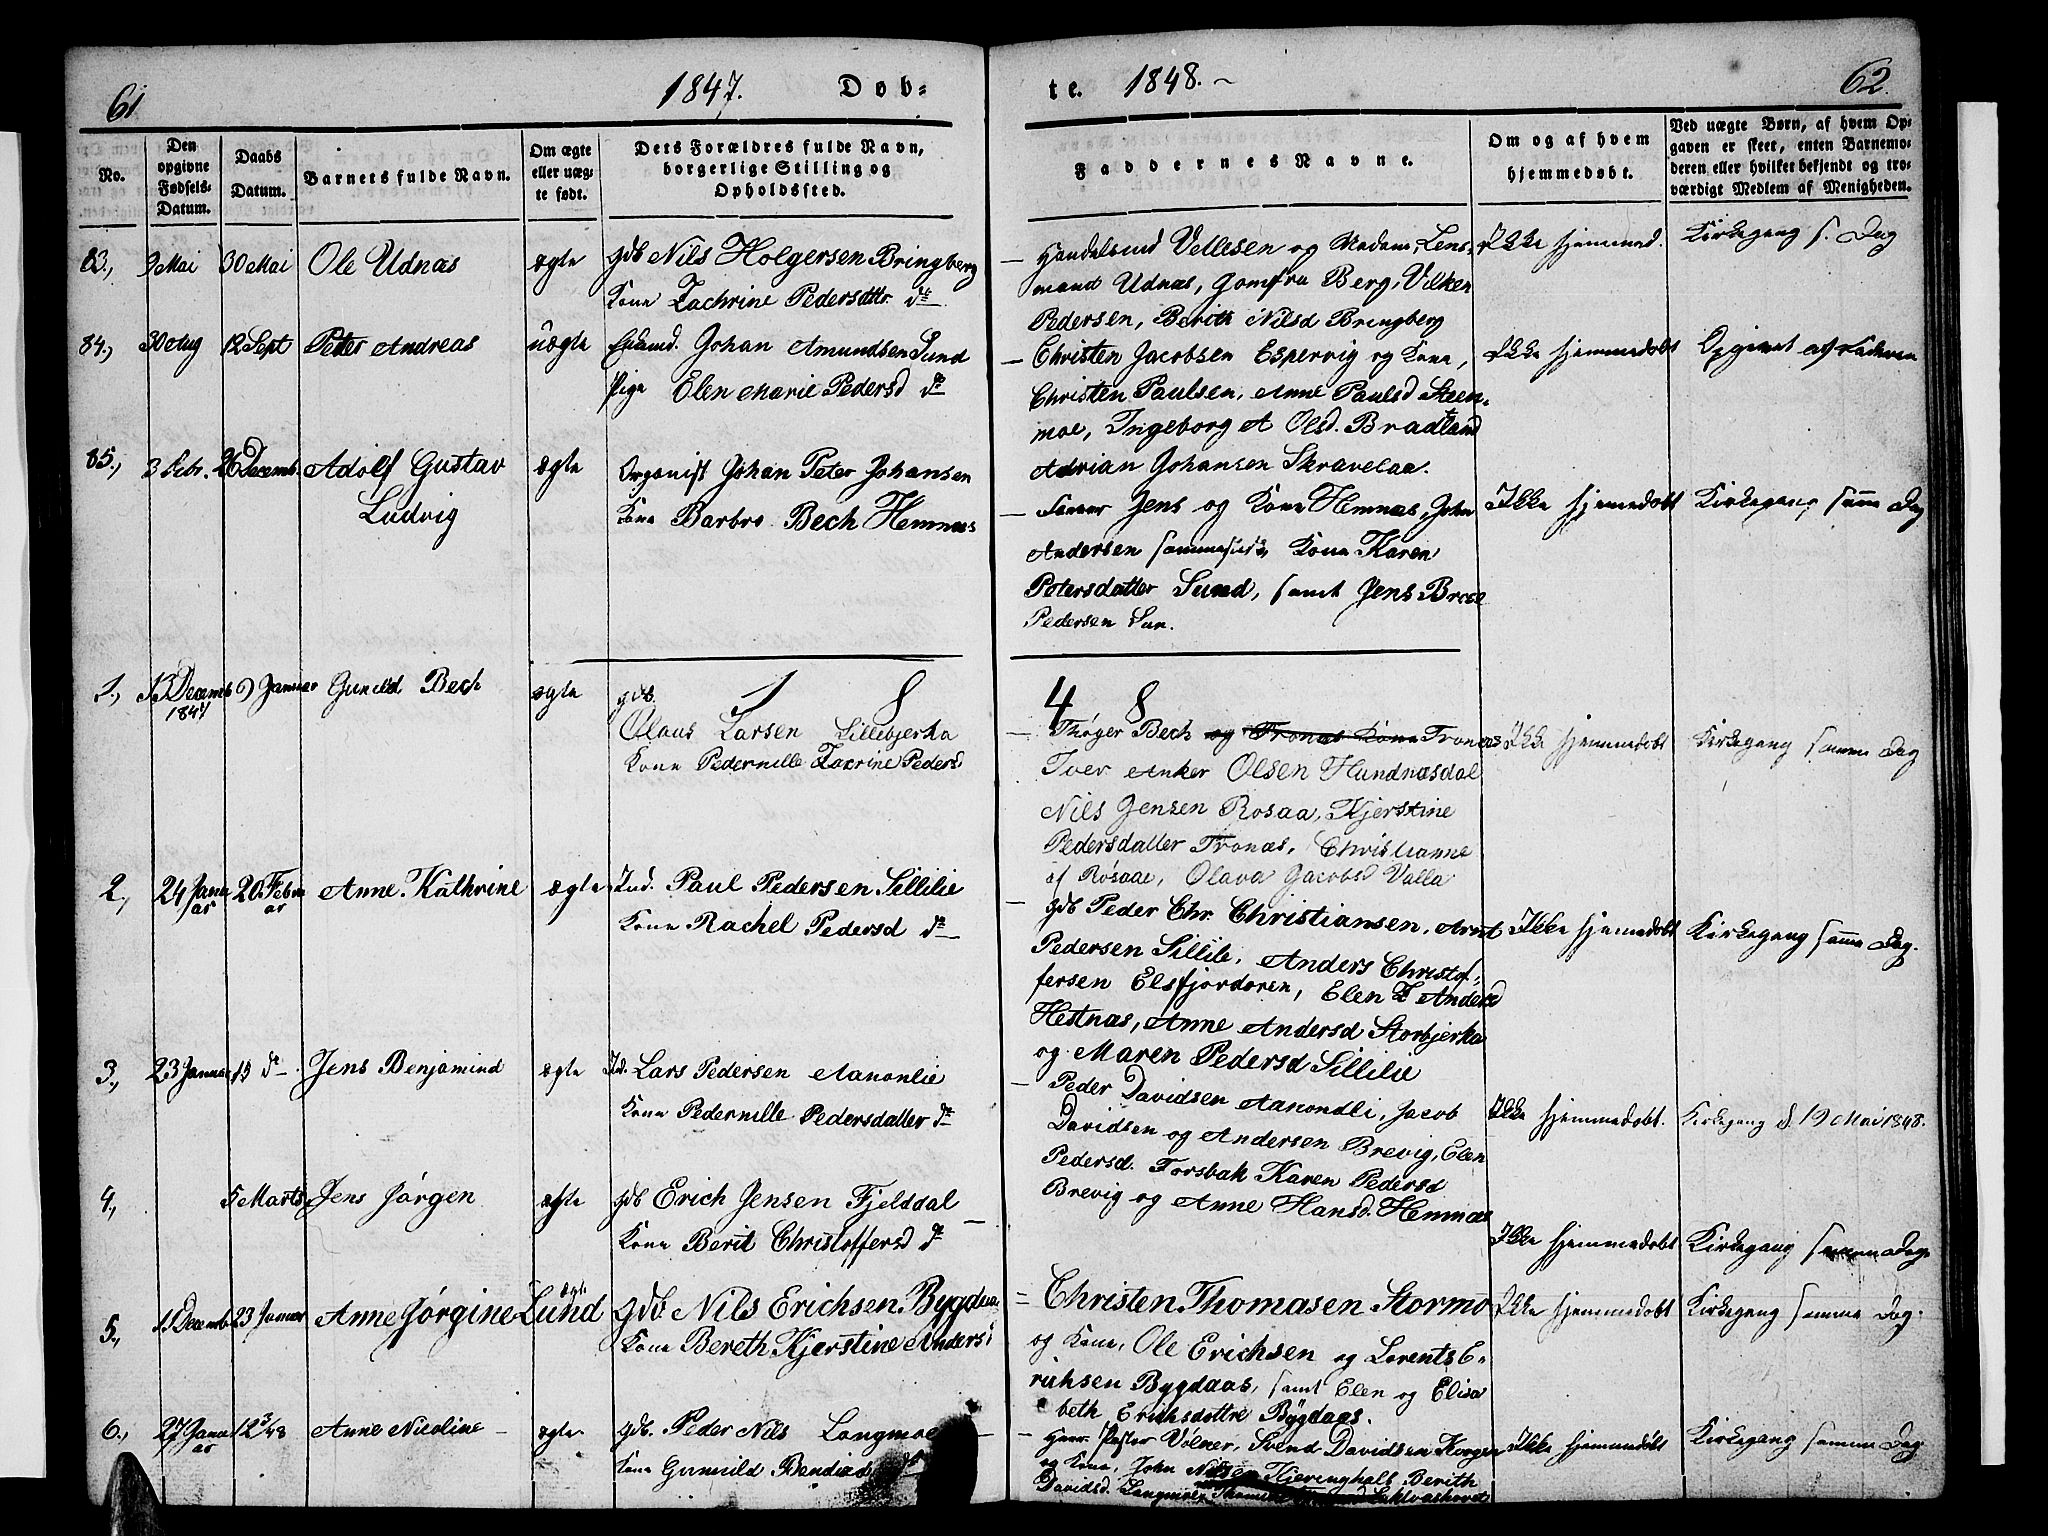 61
1847.
Dob-
te.
1848.
62.
No.
Den
opgivne
Fødsels-
Datum.
Daabs
Datum.
Barnets fulde Navn.
Om ægte
eller uæg-
te født.
Dets Forældres fulde Navn,
borgerlige Stilling og
Opholdssted.
Faddernes Navne.
Om og af hvem
hjemmedøbt.
Ved uægte Børn, af hvem Op-
gaven er skeet, enten Barnemo-
deren eller hvilket bekjendt og tro-
værdigt Medlem af Menigheden.
83.,
9 Mai
30 Mai
Ole Udnæs
ægte
gdb Nils Holgersen Bringberg
Kone Zachrine Pedersdttr. do
Handelsmd Vellesen og Madam, Lens-
mand Udnæs, Jomfru Berg, Vilken
Pedersen, Berith Nilsd Bringberg
Ikke hjemmed.
Kirkegang s. Dag
84.,
30 Aug
12 Sept
Peter Andreas
uægte
Johan Amundsen Sund
Pige Elen Marie Pedersd do
Christen Jacobsen Espervig og Kone,
Christen Paulsen, Anne Paulsd Steen-
moe, Ingeborg A Olsd. Bradtland
Adrian Johansen Skravelaa.
Ikke hjemmedøbt
Opgivet af Faderen
85.,
3 Febr.
26 Decemb.
Adolf Gustav
Ludvig
ægte
Organist Johan Peter Johansen
Kone Barbro Bech Hemnæs
Farver Jens og Kone Hemnæs, John
Andersen sammesteds, Kone Karen
Petersdatter Sund, samt Jens Brose
Pedersen Sun.
Ikke hjemmedøbt
Kirkegang samme Dag
1 8 4 8
1.,
13 Decemb
1847
9 Januar
Gunild Bech
ægte
gdb.
Olaus Larsen Lillebjerka
Kone Pedernille Zacrine Pedersd
Thøger Bech og Tronæs Kone Tronæs
Iver Anker Olsen Hundnæsdal
Nils Jensen Rosaa, Kjerstine
Pedersdatter Tronæs, Christianne
af Røsaae, Olava Jacobsd Valla
Ikke hjemmedøbt
Kirkegang samme Dag
2.,
24 Janu
ar
20 Febru
ar
Anne Kathrine
ægte
Ind. Paul Pedersen Lillilie
Kone Rachel Pedersd do
gdb Peder Chr. Christiansen, Arnt
Pedersen Lillile, Anders Christof-
fersen Elsfjordøren, Elen Z Andersd
Hestnæs, Anne Andersd Storbjerka
og Maren Pedersd Lillilie
Ikke hjemmedøbt
Kirkegang samme Dag.
3.,
23 Januar
do
Jens Benjamind
ægte
Id. Lars Pedersen Aanonlie
Kone Pedernille Pedersdatter do
Peder Davidsen Aanondli, Jacob
Davidsen og Andersen Brevig, Elen
Pedersd. Forsbak Karen Pedersd
Brevig og Anne Hansd. Hemnæs
Ikke hjemmedøbt.
Kirkegang d. 19 Mai 1848.
4.,
5 Marts
Jens Jørgen
ægte
gdb Erich Jensen Fjelddal
Kone Berit Christoffersd do
Ikke hjemmedøbt
Kirkegang samme Dag
5.,
23 Januar
Anne Jørgine Lund
ægte
gdb. Nils Erichsen Bygdaas
Kone Bereth Kjerstine Andersd
Christen Thomasen Stormo
og Kone, Ole Erichsen og Lorents E-
richsen Bygdaas, samt Elen og Elisa
beth Erichsdøttre Bygdaas.
Ikke hjemmedøbt
Kirkegang samme Dag.
6.,
27 Janu
ar
12 3/48
Anne Nicoline
ægte
gdb. Peder Nils Langmoe
Kone Gunuild Bendixd
Herr Pastor Vølner, Svend Davidsen Korgen
og Kone, John Nilsen Kjeringhals Berith
Davidsd. Langmoe
Ikke hjemmedøbt
Kirkegang samme Dag